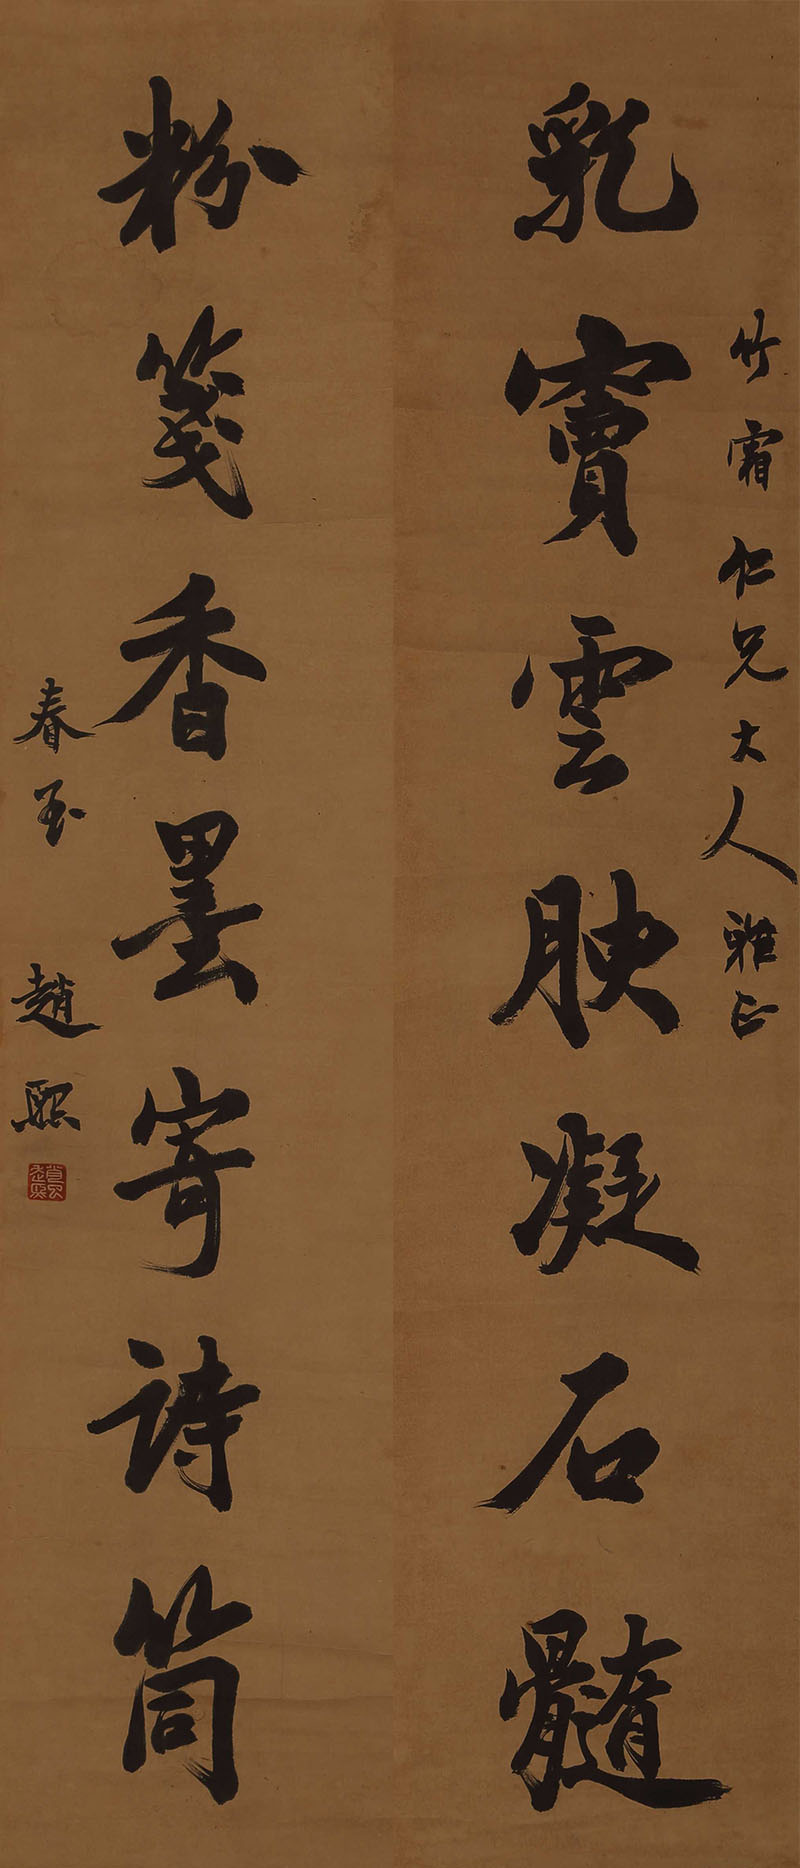 竹霜仁兄大人雅正
乳竇雲腴凝石髓
粉箋香墨寄詩筒
春玉 趙熙